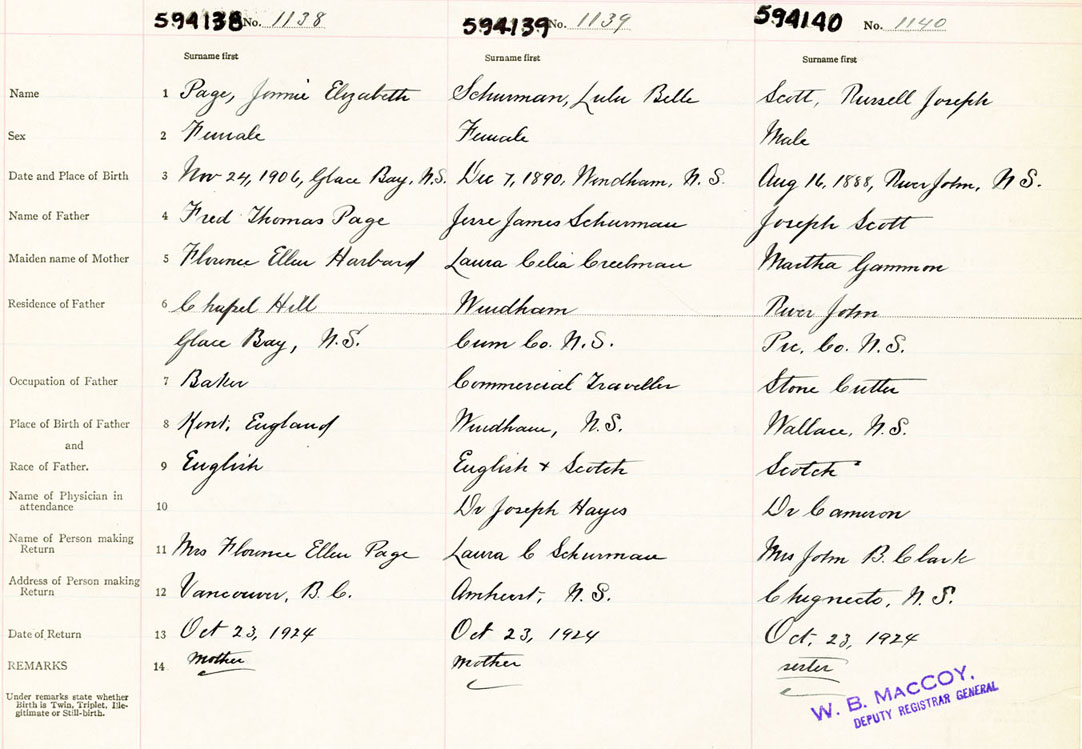 594138 No. 1138 594139 No. 1139 594140 No. 1140
Surname first Surname first Surname first
Name 1 Page, Jennie Elizabeth Schurman, Lulu Belle Scott, Russell Joseph
Sex 2 Female Female Male
Date and Place of Birth 3 Nov 24, 1906, Glace Bay, N.S. Dec 7, 1890, Windham, N.S. Aug 16, 1888, River John, N.S.
Name of Father 4 Fred Thomas Page Jesse James Schurman Joseph Scott
Maiden name of Mother 5 Florence Ellen Harband Laura Celia Creelman Martha Gammon
Residence of Father 6 Chapel Hill Windham River John
Glace Bay, N.S. Cum Co. N.S. Pic. Co. N.S.
Occupation of Father 7 Baker Commercial Traveller Stone Cutter
Place of Birth of Father 8 Kent, England Windham, N.S. Wallace, N.S.
and
Race of Father. 9 English English + Scotch Scotch
Name of Physician in
attendance 10 Dr Joseph Hayes Dr Cameron
Name of Person making
Return 11 Mrs Florence Ellen Page Laura C Schurman Mrs John B. Clark
Address of Person making
Return 12 Vancouver, B.C. Amherst, N.S. Chignecto, N.S.
Date of Return 13 Oct 23, 1924 Oct 23, 1924 Oct. 23, 1924
REMARKS 14 mother mother sister
Under remarks state whether
Birth is Twin, Triplet, Ille-
gitimate or Still-birth.
W. B. MACCOY,
DEPUTY REGISTRAR GENERAL